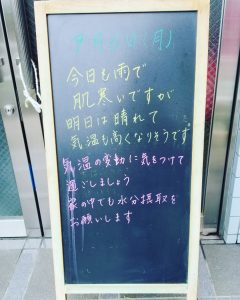 今日も雨で
肌寒いですが
明日は晴れて
気温も高くなりそうです
気温の変動に気をつけて
過ごしましょう
家の中でも水分摂取を
お願いします